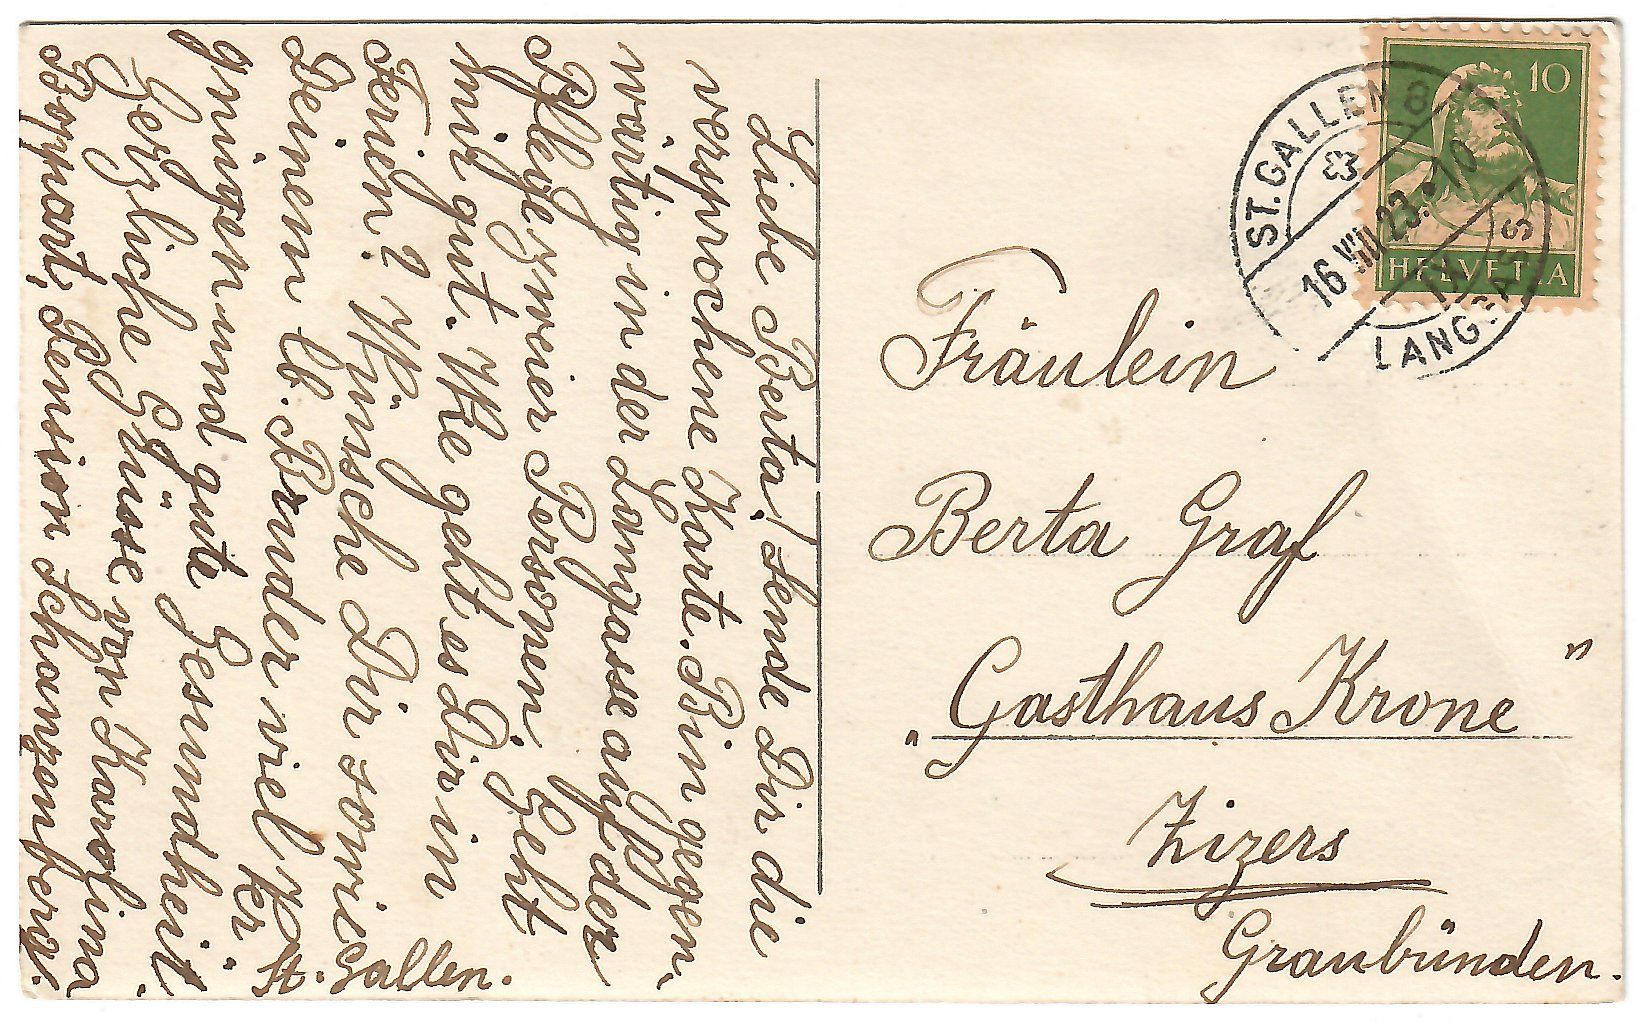 Liebe Berta! Sende Dir die
versprochene Karte. Bin gegen-
wärtig in der Langgasse auf der
Pflege zweier Personen. Geht
mir gut. Wie geht es Dir in
Ferien? Wünsche Dir sowie
Deinem lb. Bruder viel Ver-
gnügen und gute Gesundheit.
Herzliche Grüsse von Karolina
Boppart, Pension Schanzenberg.
St. Gallen.
ST. GALLEN 8
16 VIII 23. - 10
LANGGASS
10
HELVETIA
Fräulein
Berta Graf
„Gasthaus Krone"
Zizers
Graubünden.